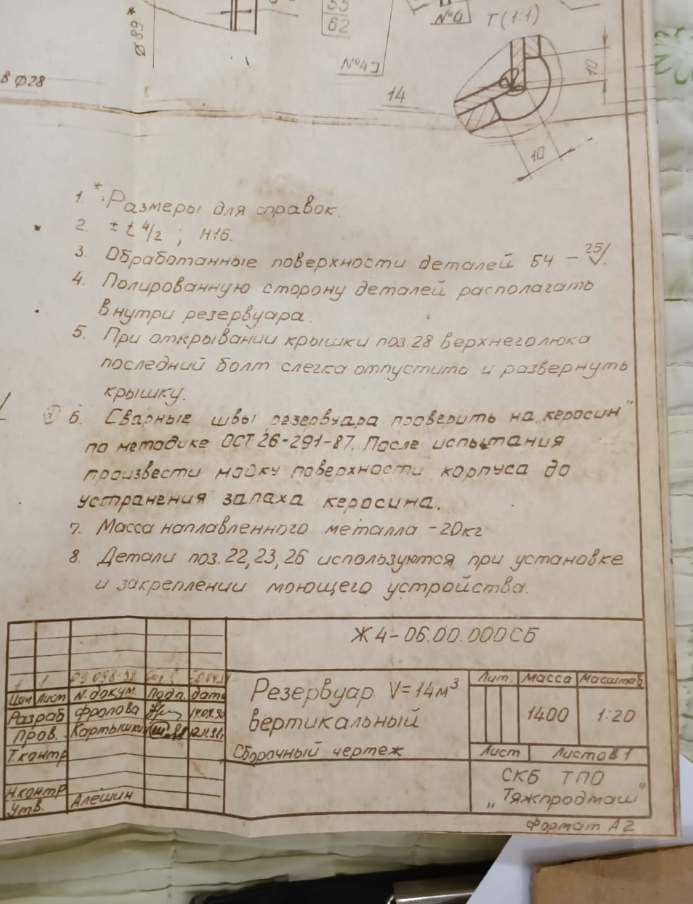 53
62
№6
Т (1:1)
ø89*
№4
в ø28
14
10
10
1. * Размеры для справок.
2. ± t4/2 ; H16.
3. Обработанные поверхности деталей БЧ – 25/.
4. Полированную сторону деталей располагать
внутри резервуара.
5. При открывании крышки поз.28 верхнего люка
последний болт слегка отпустить и развернуть
крышку.
6. Сварные швы резервуара проверить на „керосин"
по методике ОСТ 26-291-87. После испытания
произвести мойку поверхности корпуса до
устранения запаха керосина.
7. Масса наплавленного металла -20кг
8. Детали поз.22,23,26 используются при установке
и закреплении моющего устройства.
Ж4-06.00.000СБ
Изм Лист N.докум. Подп. дата
Разраб Фролова
Пров.
Т.контр
Н.контр
Утв. Алёшин
Резервуар V=14м³
вертикальный
Сборочный чертеж
Лит. Масса Масштаб
1400 1:20
Лист Листов 1
СКБ ТПО
„Тяжпродмаш"
Формат А2